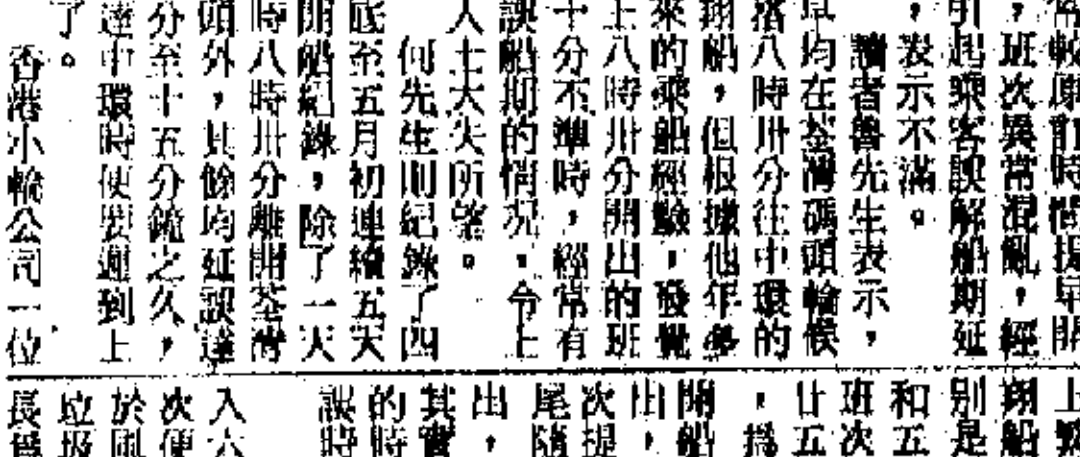 常較原訂時間提早開
，班次異常混亂，經
引起乘客誤解船期延
，表示不滿。
讀者魯先生表示，
均在荃灣碼頭輪候
搭八時卅分往中環的
翔船，但根據他年多
來的乘船經驗，發覺
上八時卅分開出的班
十分不準時，經常有
誤船期的情況，令上
人士大失所望。
何先生則紀錄了四
底至五月初連續五天
開船紀錄，除了一天
時八時卅分離開荃灣
頭外，其餘均延誤達
分至十五分鐘之久，
達中環時便要遲到上
了。
香港小輪公司一位
上
翔船
別是
和五
班次
廿五
，為
開船
出，
次提
尾隨
出，
其實
的時
誤時
入六
次便
於風
垃圾
長為